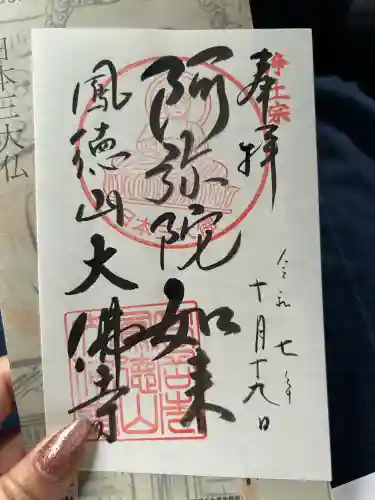 奉拝
浄土宗
令和七年
十月十九日
阿弥陀如来
鳳徳山大佛寺
日本三大仏